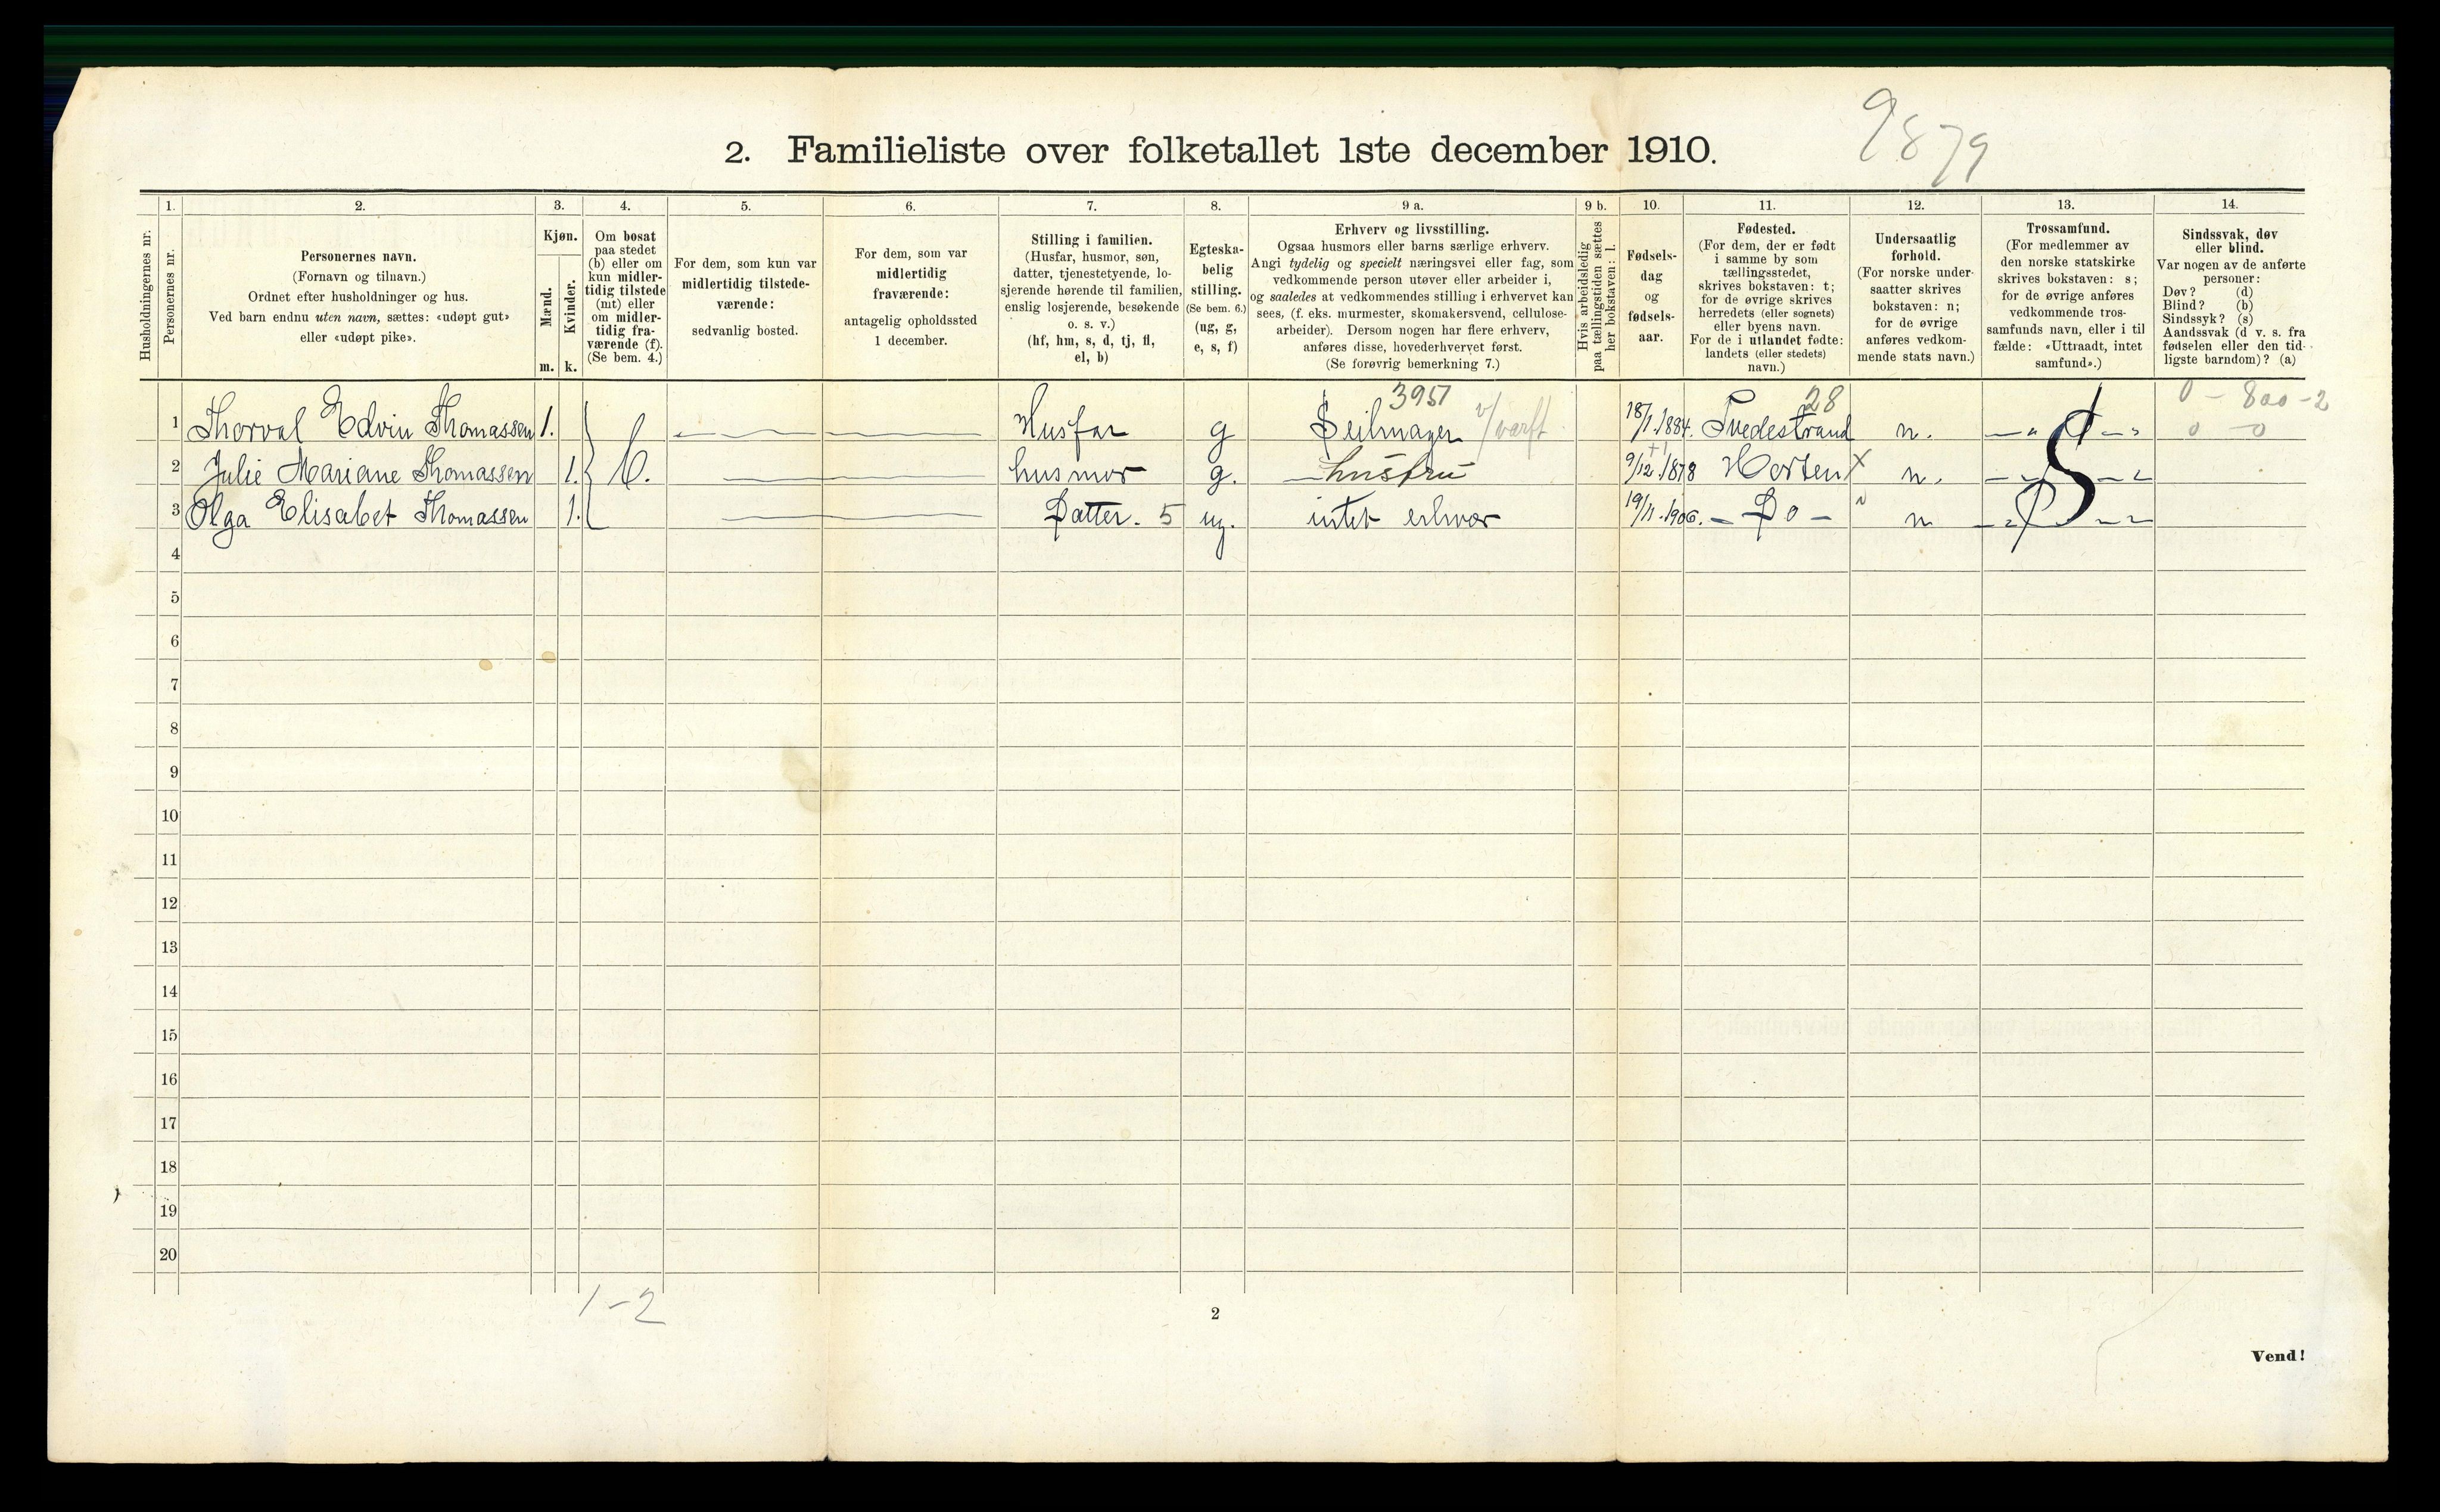 2. Familieliste over folketallet 1ste december 1910.
9879
Husholdningernes nr.
1.
Personernes nr.
2.
Personernes navn.
(Fornavn og tilnavn.)
Ordnet efter husholdninger og hus.
Ved barn endnu uten navn, sættes: «udøpt gut»
eller «udøpt pike».
3.
Kjøn.
Mænd.
Kvinder.
m.
k.
4.
Om bosat
paa stedet
(b) eller om
kun midler-
tidig tilstede
(mt) eller
om midler-
tidig fra-
værende (f).
(Se bem. 4.)
5.
For dem, som kun var
midlertidig tilstede-
værende:
sedvanlig bosted.
6.
For dem, som var
midlertidig
fraværende:
antagelig opholdssted
1 december.
7.
Stilling i familien.
(Husfar, husmor, søn,
datter, tjenestetyende, lo-
sjerende hørende til familien,
enslig losjerende, besøkende
o. s. v.)
(hf, hm, s, d, tj, fl,
el, b)
8.
Egteska-
belig
stilling.
(Se bem. 6.)
(ug, g,
e, s, f)
9 a.
Erhverv og livsstilling.
Ogsaa husmors eller barns særlige erhverv.
Angi tydelig og specielt næringsvei eller fag, som
vedkommende person utøver eller arbeider i,
og saaledes at vedkommendes stilling i erhvervet kan
sees, (f. eks. murmester, skomakersvend, cellulose-
arbeider). Dersom nogen har flere erhverv,
anføres disse, hovederhvervet først.
(Se forøvrig bemerkning 7.)
9 b.
Hvis arbeidsledig
paa tællingstiden sættes
her bokstaven: l.
10.
Fødsels-
dag
og
fødsels-
aar.
11.
Fødested.
(For dem, der er født
i samme by som
tællingsstedet,
skrives bokstaven: t;
for de øvrige skrives
herredets (eller sognets)
eller byens navn.
For de i utlandet fødte:
landets (eller stedets)
navn.)
12.
Undersaatlig
forhold.
(For norske under-
saatter skrives
bokstaven: n;
for de øvrige
anføres vedkom-
mende stats navn.)
13.
Trossamfund.
(For medlemmer av
den norske statskirke
skrives bokstaven: s;
for de øvrige anføres
vedkommende tros-
samfunds navn, eller i til
fælde: «Uttraadt, intet
samfund».)
14.
Sindssvak, døv
eller blind.
Var nogen av de anførte
personer:
Døv? (d)
Blind? (b)
Sindssyk? (s)
Aandssvak (d v. s. fra
fødselen eller den tid-
ligste barndom)? (a)
3951 28 0 - 800 - 2
1 Thorval Edvin Thomassen 1. Husfar g Seilmager v/verft 18/1.1884. Tvedestrand n. 0 - 0
2 Julie Mariane Thomassen 1. b. husmor g. hustru 9/12.1878 Horten X n. S
3 Olga Elisabet Thomassen 1. Datter. 5 ug. intet erhver 19/11.1906. - Do - n
4
5
6
7
8
9
10
11
12
13
14
15
16
17
18
19
20
1-2
2
Vend!